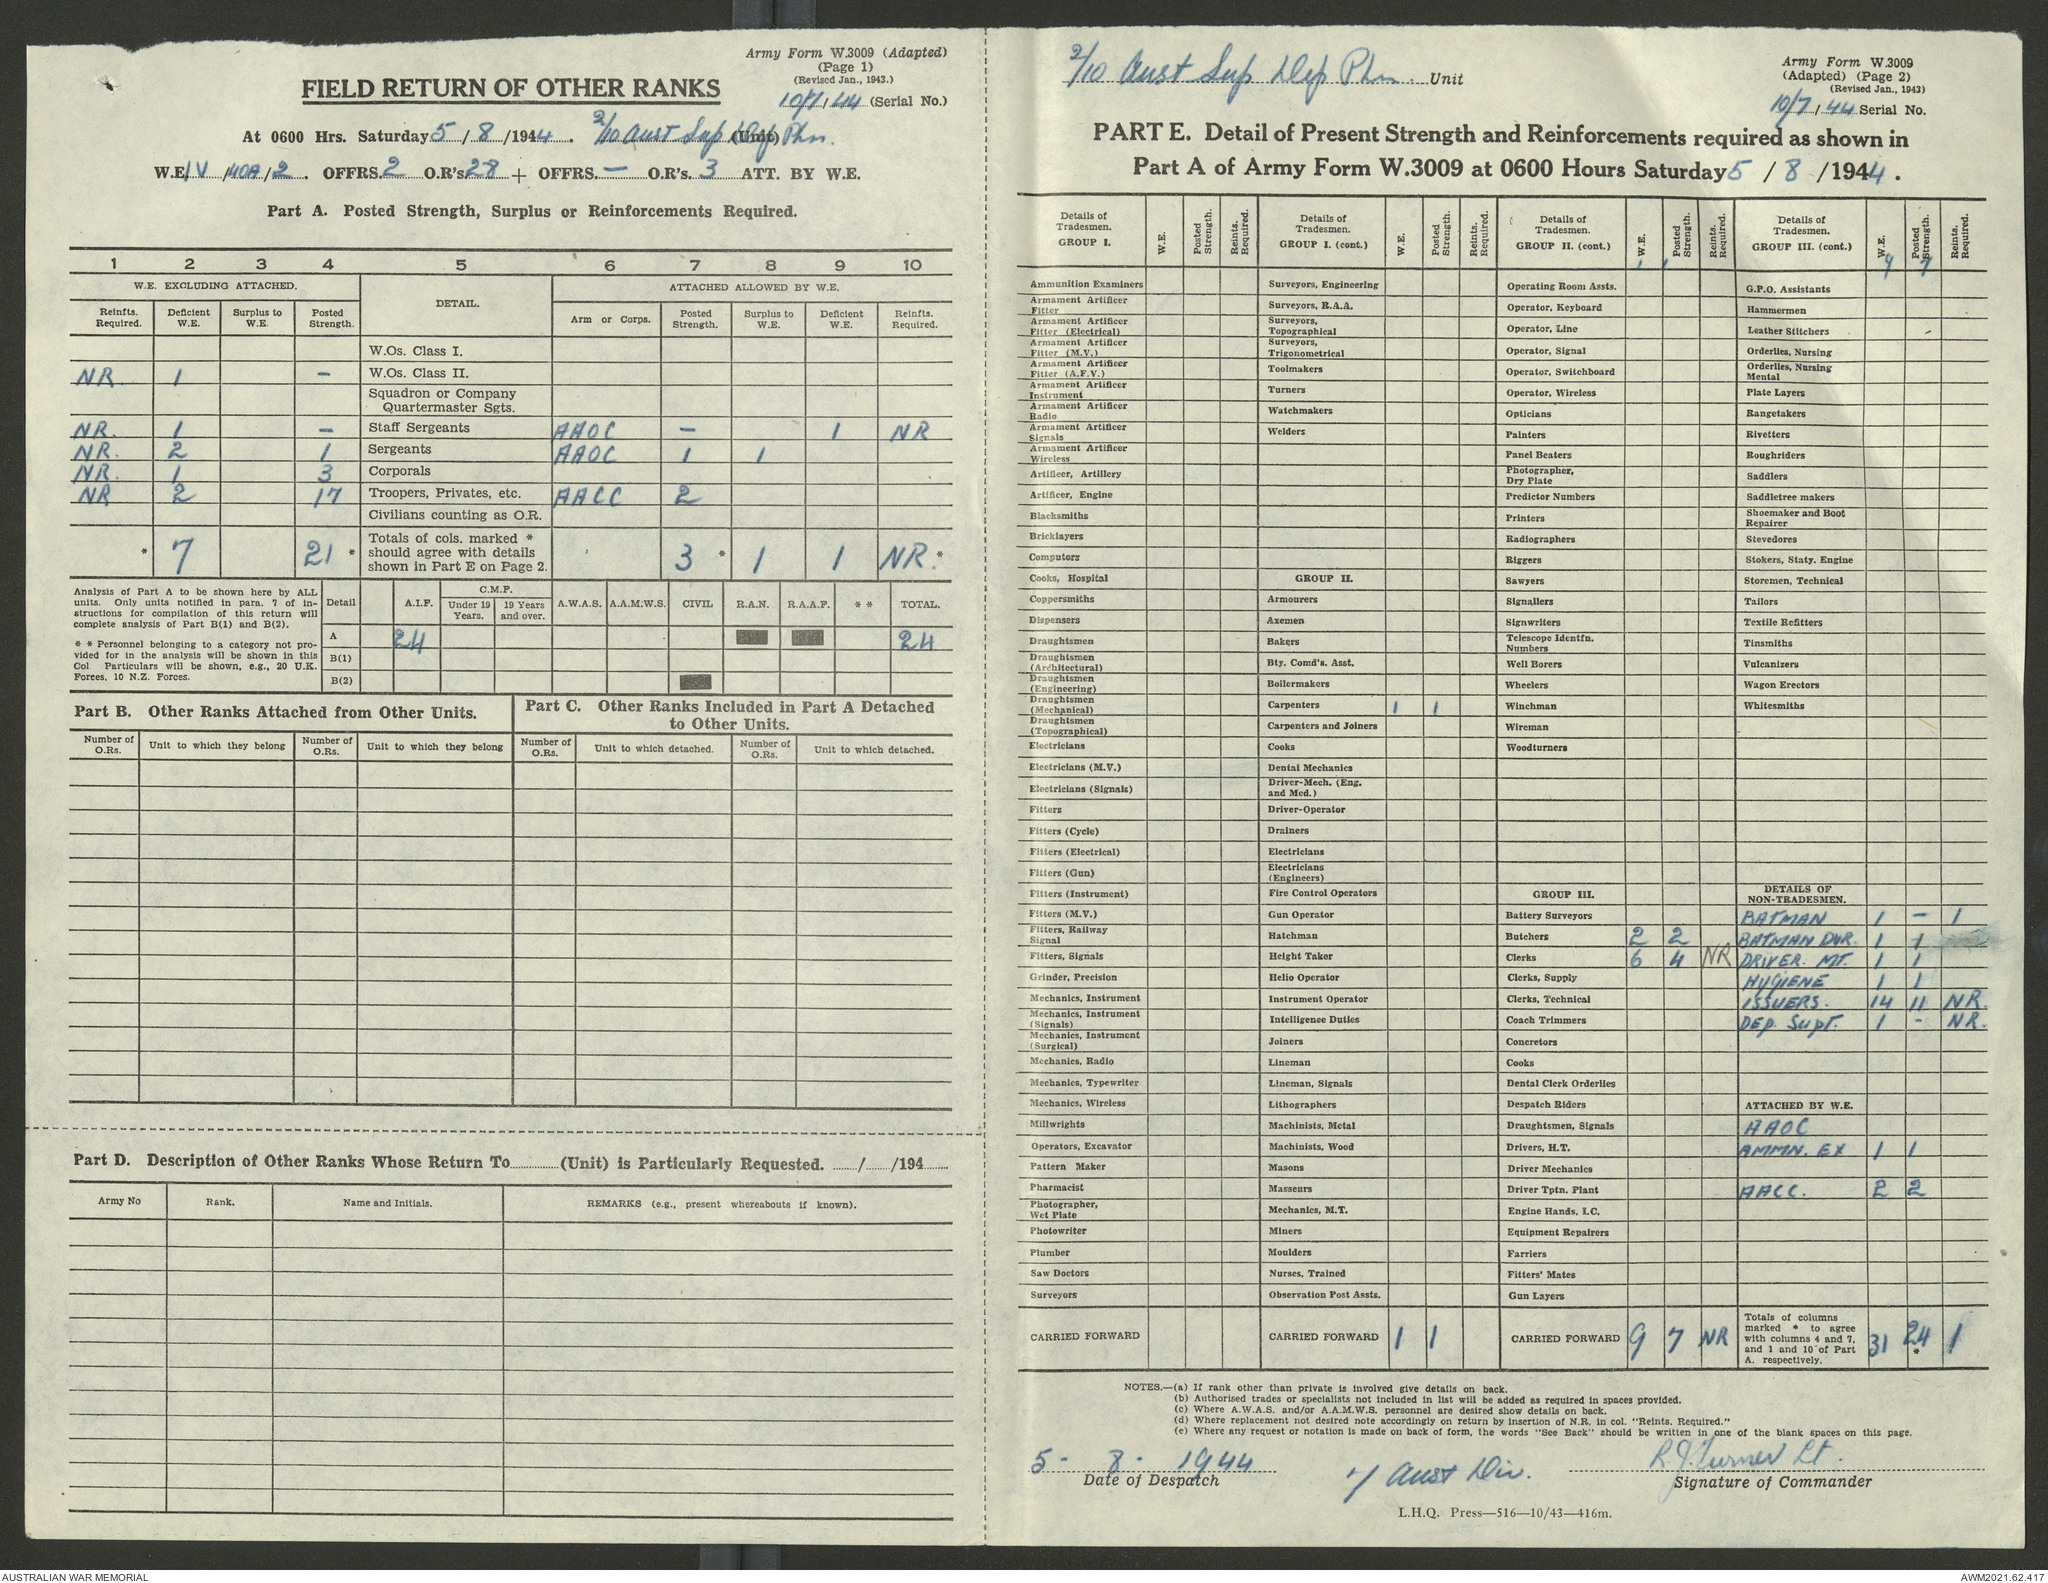 Army Form W.3009 (Adapted)
(Page 1)
(Revised Jan., 1943.)
10/7/44 (Serial No.)
FIELD RETURN OF OTHER RANKS
At 0600 Hrs. Saturday 5/8/1944. 2/10 Aust Sup Dep Pln. (Unit)
W.E. IV/40A/2. OFFRS. 2 O.R's 28 + OFFRS. — O.R's. 3 ATT. BY W.E.
Part A. Posted Strength, Surplus or Reinforcements Required.
1 2 3 4 5 6 7 8 9 10
W.E. EXCLUDING ATTACHED. DETAIL. ATTACHED ALLOWED BY W.E.
Reinfts. Required. Deficient W.E. Surplus to W.E. Posted Strength. Arm or Corps. Posted Strength. Surplus to W.E. Deficient W.E. Reinfts. Required.
W.Os. Class I.
NR 1 – W.Os. Class II.
Squadron or Company Quartermaster Sgts.
NR. 1 – Staff Sergeants AAOC – 1 NR
NR. 2 1 Sergeants AAOC 1 1
NR. 1 3 Corporals
NR 2 17 Troopers, Privates, etc. AACC 2
Civilians counting as O.R.
* 7 21 * Totals of cols. marked * should agree with details shown in Part E on Page 2. 3 * 1 1 NR. *
Analysis of Part A to be shown here by ALL
units. Only units notified in para. 7 of in-
structions for compilation of this return will
complete analysis of Part B(1) and B(2).
* * Personnel belonging to a category not pro-
vided for in the analysis will be shown in this
Col Particulars will be shown, e.g., 20 U.K.
Forces, 10 N.Z. Forces.
Detail A.I.F. C.M.F. Under 19 Years. 19 Years and over. A.W.A.S. A.A.M.W.S. CIVIL R.A.N. R.A.A.F. * * TOTAL.
A 24 24
B(1)
B(2)
Part B. Other Ranks Attached from Other Units.
Part C. Other Ranks Included in Part A Detached
to Other Units.
Number of O.Rs. Unit to which they belong Number of O.Rs. Unit to which they belong Number of O.Rs. Unit to which detached. Number of O.Rs. Unit to which detached.
Part D. Description of Other Ranks Whose Return To............(Unit) is Particularly Requested. ....../....../194......
Army No Rank. Name and Initials. REMARKS (e.g., present whereabouts if known).
2/10 Aust Sup Dep Pln. Unit
Army Form W.3009
(Adapted) (Page 2)
(Revised Jan., 1943)
10/7/44 Serial No.
PART E. Detail of Present Strength and Reinforcements required as shown in
Part A of Army Form W.3009 at 0600 Hours Saturday 5/8/1944.
Details of Tradesmen. GROUP I. W.E. Posted Strength. Reints. Required.
Ammunition Examiners
Armament Artificer Fitter
Armament Artificer Fitter (Electrical)
Armament Artificer Fitter (M.V.)
Armament Artificer Fitter (A.F.V.)
Armament Artificer Instrument
Armament Artificer Radio
Armament Artificer Signals
Armament Artificer Wireless
Artificer, Artillery
Artificer, Engine
Blacksmiths
Bricklayers
Computors
Cooks, Hospital
Coppersmiths
Dispensers
Draughtsmen
Draughtsmen (Architectural)
Draughtsmen (Engineering)
Draughtsmen (Mechanical)
Draughtsmen (Topographical)
Electricians
Electricians (M.V.)
Electricians (Signals)
Fitters
Fitters (Cycle)
Fitters (Electrical)
Fitters (Gun)
Fitters (Instrument)
Fitters (M.V.)
Fitters, Railway Signal
Fitters, Signals
Grinder, Precision
Mechanics, Instrument
Mechanics, Instrument (Signals)
Mechanics, Instrument (Surgical)
Mechanics, Radio
Mechanics, Typewriter
Mechanics, Wireless
Millwrights
Operators, Excavator
Pattern Maker
Pharmacist
Photographer, Wet Plate
Photowriter
Plumber
Saw Doctors
Surveyors
CARRIED FORWARD
Details of Tradesmen. GROUP I. (cont.) W.E. Posted Strength. Reints. Required.
Surveyors, Engineering
Surveyors, R.A.A.
Surveyors, Topographical
Surveyors, Trigonometrical
Toolmakers
Turners
Watchmakers
Welders
GROUP II.
Armourers
Axemen
Bakers
Bty. Comd's. Asst.
Boilermakers
Carpenters 1 1
Carpenters and Joiners
Cooks
Dental Mechanics
Driver-Mech. (Eng. and Med.)
Driver-Operator
Drainers
Electricians
Electricians (Engineers)
Fire Control Operators
Gun Operator
Hatchman
Height Taker
Helio Operator
Instrument Operator
Intelligence Duties
Joiners
Lineman
Lineman, Signals
Lithographers
Machinists, Metal
Machinists, Wood
Masons
Masseurs
Mechanics, M.T.
Miners
Moulders
Nurses, Trained
Observation Post Assts.
CARRIED FORWARD 1 1
Details of Tradesmen. GROUP II. (cont.) W.E. Posted Strength. Reints. Required.
1 1
Operating Room Assts.
Operator, Keyboard
Operator, Line
Operator, Signal
Operator, Switchboard
Operator, Wireless
Opticians
Painters
Panel Beaters
Photographer, Dry Plate
Predictor Numbers
Printers
Radiographers
Riggers
Sawyers
Signallers
Signwriters
Telescope Identfn. Numbers
Well Borers
Wheelers
Winchman
Wireman
Woodturners
GROUP III.
Battery Surveyors
Butchers 2 2
Clerks 6 4 NR
Clerks, Supply
Clerks, Technical
Coach Trimmers
Concretors
Cooks
Dental Clerk Orderlies
Despatch Riders
Draughtsmen, Signals
Drivers, H.T.
Driver Mechanics
Driver Tptn. Plant
Engine Hands, I.C.
Equipment Repairers
Farriers
Fitters' Mates
Gun Layers
CARRIED FORWARD 9 7 NR
Details of Tradesmen. GROUP III. (cont.) W.E. Posted Strength. Reints. Required.
9 7
G.P.O. Assistants
Hammermen
Leather Stitchers
Orderlies, Nursing
Orderlies, Nursing Mental
Plate Layers
Rangetakers
Rivetters
Roughriders
Saddlers
Saddletree makers
Shoemaker and Boot Repairer
Stevedores
Stokers, Staty. Engine
Storemen, Technical
Tailors
Textile Refitters
Tinsmiths
Vulcanizers
Wagon Erectors
Whitesmiths
DETAILS OF NON-TRADESMEN.
BATMAN 1 – 1
BATMAN DVR. 1 1
DRIVER. MT. 1 1
HYGIENE 1 1
ISSUERS. 14 11 NR.
DEP. SUPT. 1 – NR.
ATTACHED BY W.E.
AAOC
AMMN. EX 1 1
AACC. 2 2
Totals of columns marked * to agree with columns 4 and 7, and 1 and 10 of Part A. respectively. 31 24 * 1
NOTES.—(a) If rank other than private is involved give details on back.
(b) Authorised trades or specialists not included in list will be added as required in spaces provided.
(c) Where A.W.A.S. and/or A.A.M.W.S. personnel are desired show details on back.
(d) Where replacement not desired note accordingly on return by insertion of N.R. in col. "Reints. Required."
(e) Where any request or notation is made on back of form, the words "See Back" should be written in one of the blank spaces on this page.
5 - 8 - 1944
Date of Despatch
7 Aust Div.
R.J. Turner Lt.
Signature of Commander
L.H.Q. Press—516—10/43—416m.
AUSTRALIAN WAR MEMORIAL
AWM2021.62.417